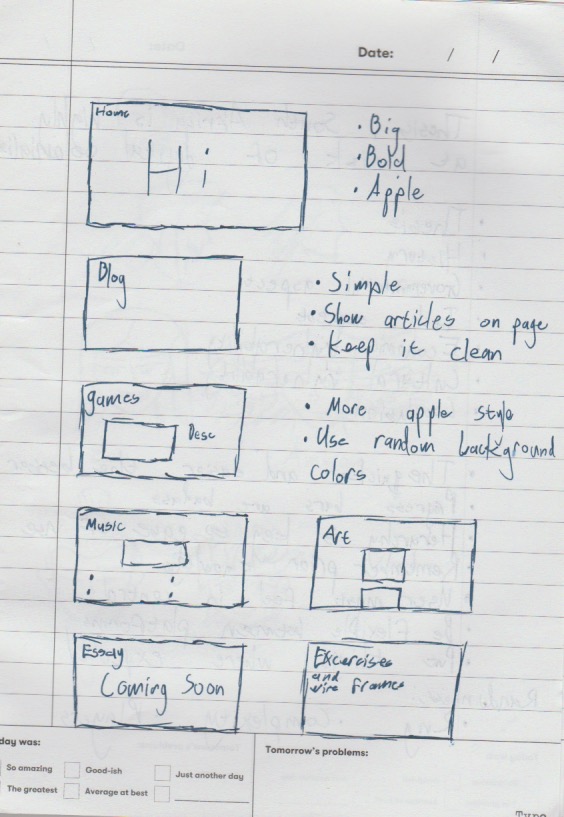 Date: / /
Home
Hi
• Big
• Bold
• Apple
Blog
• Simple
• Show articles on page
• Keep it clean
games
Desc
• More apple style
• Use random background
colors
Music
Art
Essay
Coming Soon
Excercises
and
wire frames
day was:
So amazing
Good-ish
Just another day
The greatest
Average at best
Tomorrow's problems: